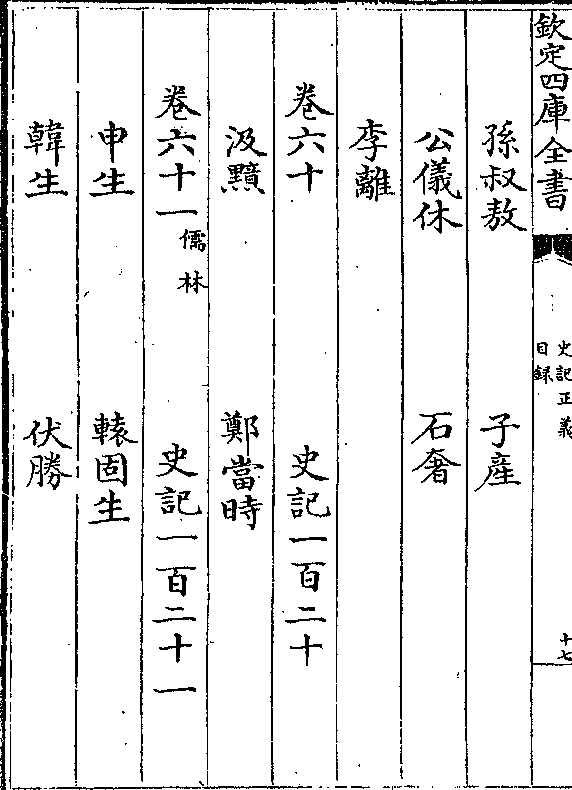 欽定四庫全書
史記正義
目録
十七
孫叔敖 子產
公儀休 石奢
李離
卷六十 史記一百二十
汲黯 鄭當時
卷六十一儒林 史記一百二十一
申生 轅固生
韓生 伏勝